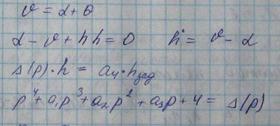 v = α + θ
α - v + hh = 0    ḣ = v - α
Δ(p)·h = a₄·hзад
p⁴ + a₁p³ + a₂p² + a₃p + 4 = Δ(p)